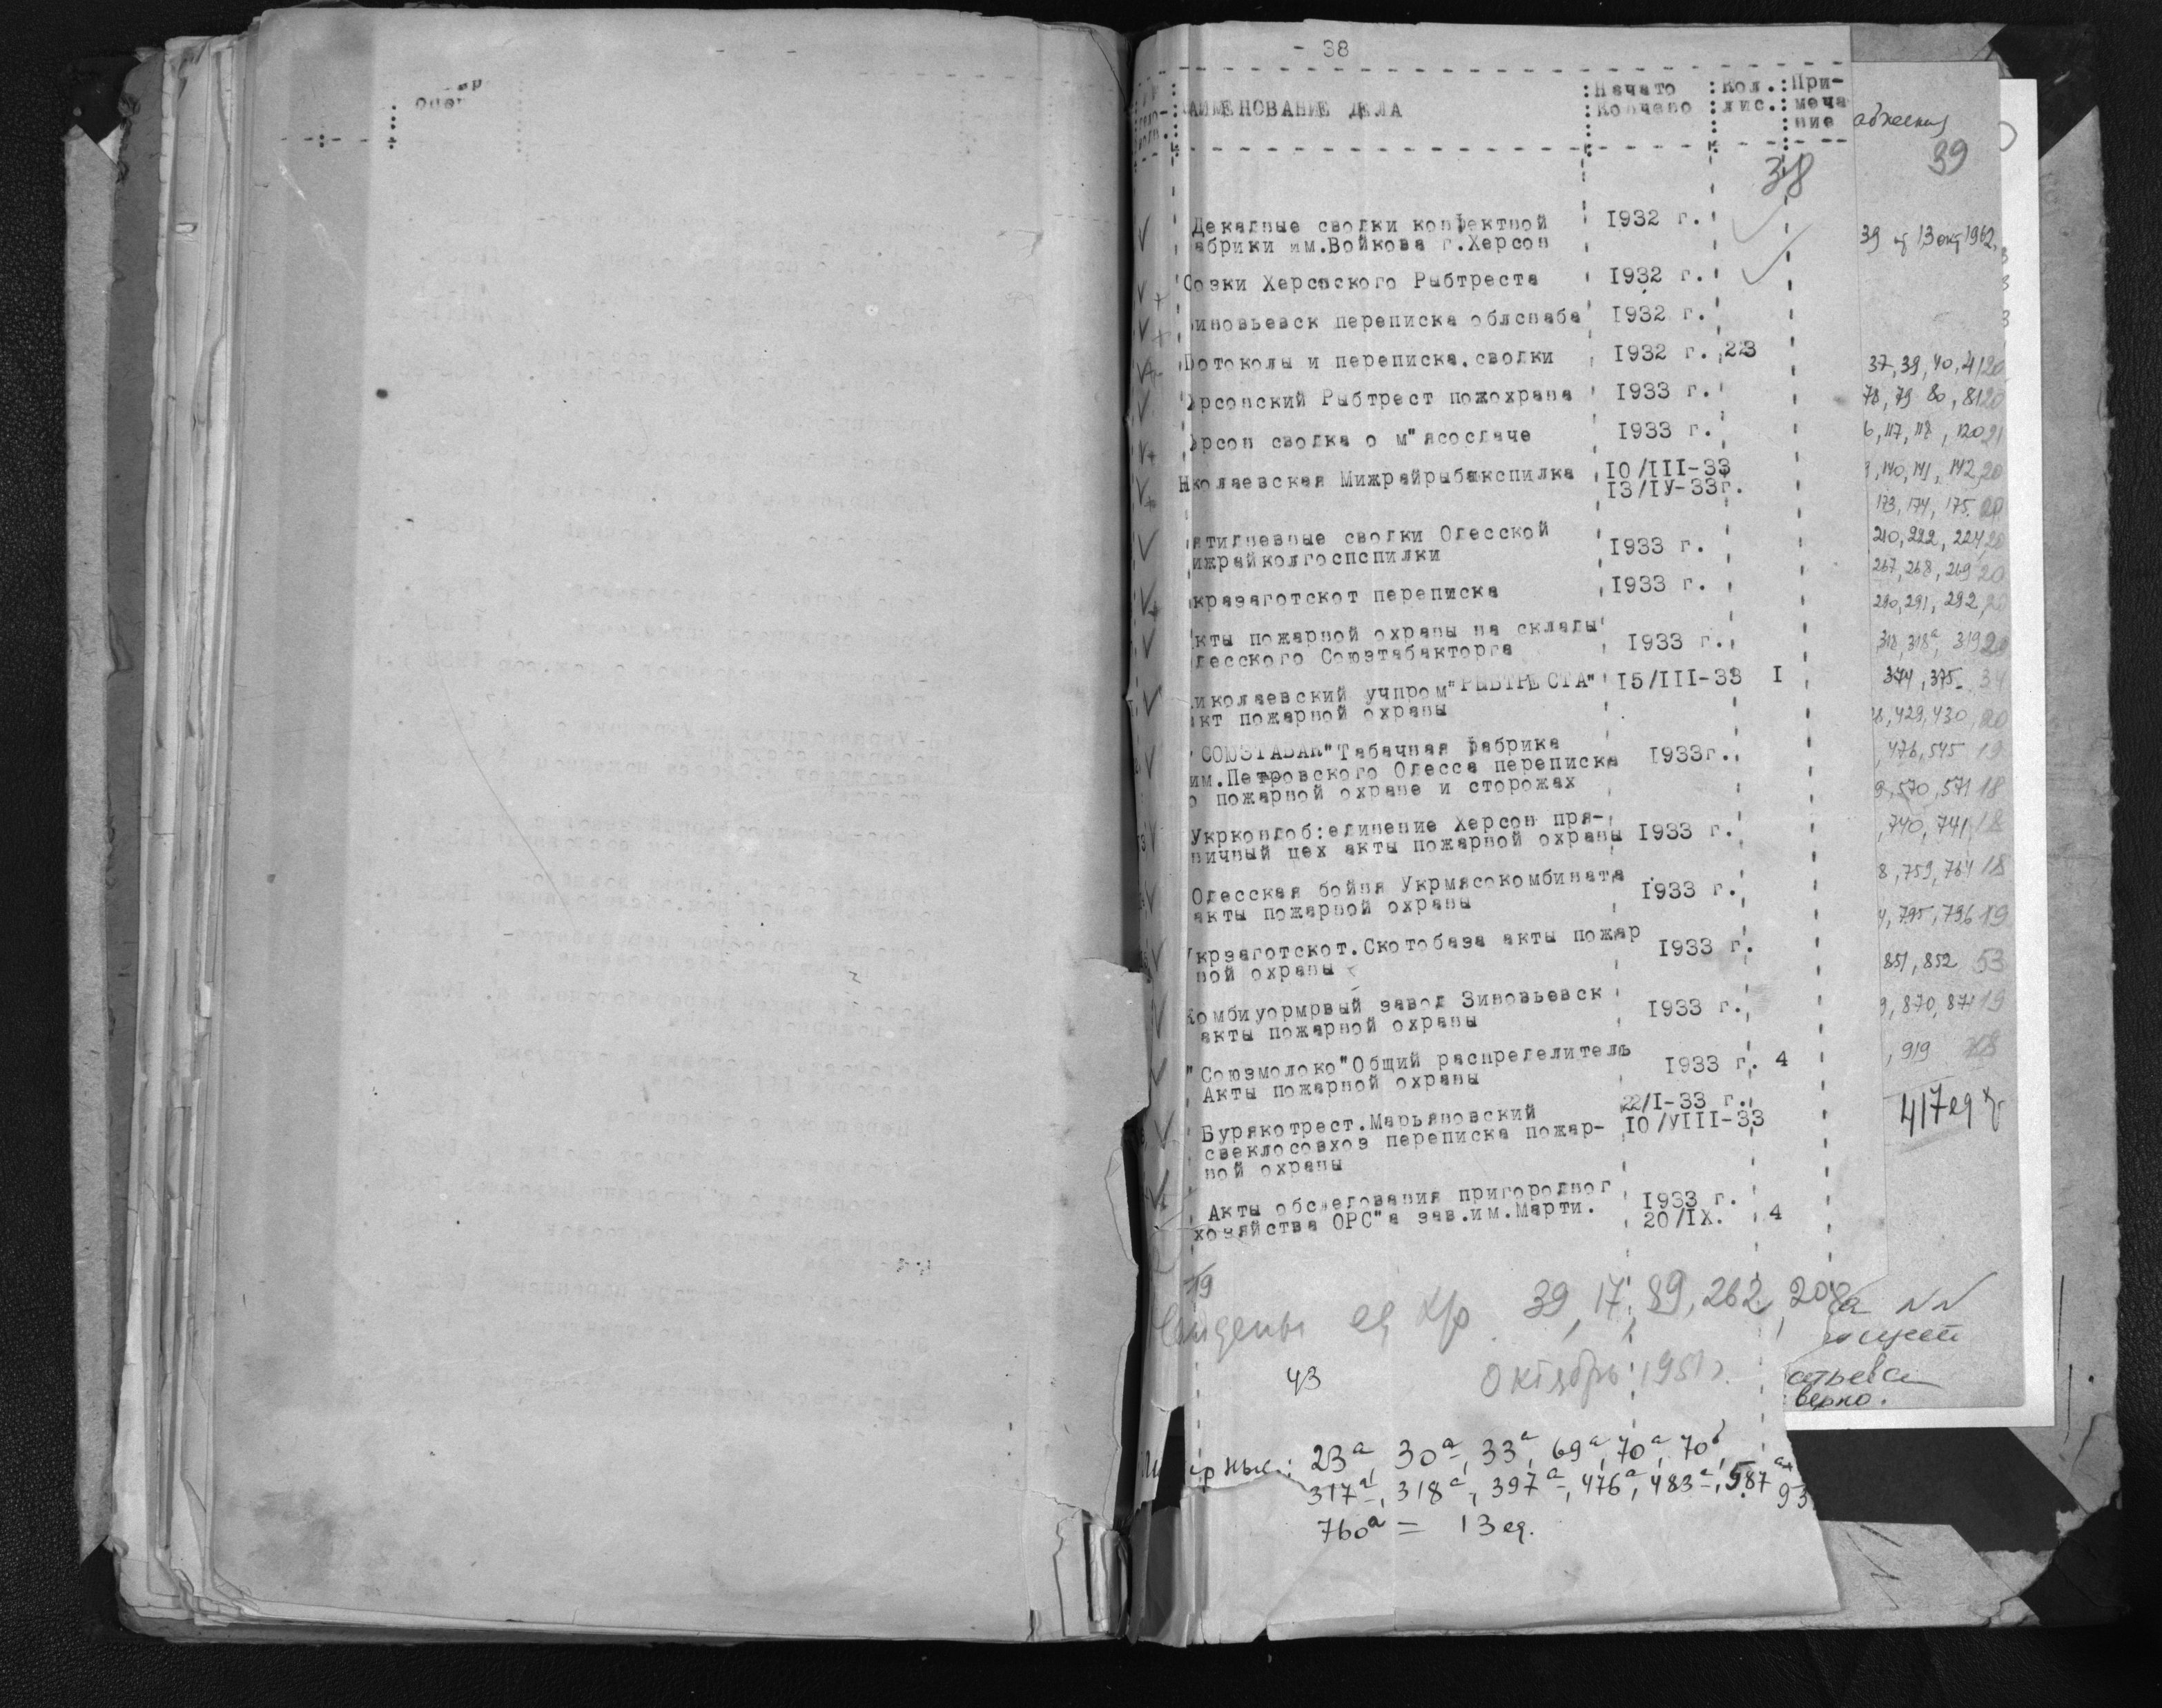 - 38
АИМЕНОВАНИЕ ДЕЛА
Начато
Кончено
Кол.
лис.
При-
меча
ние
38
Декадные сводки конфектной
абрики им.Войкова г.Херсон
1932 г.
Созки Херсоского Рыбтреста
1932 г.
иновьевск переписка облснаба
1932 г.
отоколы и переписка.сводки
1932 г. 223
рсонский Рыбтрест пожохрана
1933 г.
рсон сводка о м"ясосдаче
1933 г.
Николаевская Мижрайрыбакспилка
10/III-33
13/IУ-33г.
ятидневные сводки Одесской
ижрайколгоспспилки
1933 г.
крзаготскот переписка
1933 г.
кты пожарной охраны на склады
десского Союзтабакторга
1933 г.
иколаевский учпром"РЫБТРЕСТА"
акт пожарной охраны
15/III-33 I
"СОЮЗТАБАК"Табачная фабрика
им.Петровского Одесса переписка
о пожарной охране и сторожах
1933г.
Укркондоб:единение Херсон пря-
ничный цех акты пожарной охраны
1933 г.
Одесская бойня Укрмясокомбината
акты пожарной охраны
1933 г.
Укрзаготскот.Скотобаза акты пожар
ной охраны
1933 г.
Комбиуормрвый завод Зиновьевск
акты пожарной охраны
1933 г.
"Союзмолоко"Общий распределитель
Акты пожарной охраны
1933 г. 4
Бурякотрест.Марьяновский
свеклосовхоз переписка пожар-
ной охраны
22/I-33 г.
10/VIII-33
Акты обследования пригородног
хозяйства ОРС"а зав.им.Марти.
1933 г.
20/IX. 4
19
ед хр. 39, 17, 89, 262, 208
43
Октябрь 1951 г.
23а, 30а, 33а, 69а, 70а, 70б
317а, 318а, 397а, 476а, 483а, 587а
760а = 13 ед.
39
37, 39, 40, 41 20
78, 79 80, 81 20
6, 117, 118, 120 21
, 140, 141, 142 20
173, 174, 175 20
210, 222, 224 20
267, 268, 269 20
290, 291, 292 20
318, 318а, 319 20
374, 375 34
8, 429, 430 20
, 476, 545 19
9, 570, 571 18
, 740, 741 18
8, 759, 764 18
4, 795, 796 19
851, 852 53
9, 870, 871 19
, 919
417 ед хр
верно.